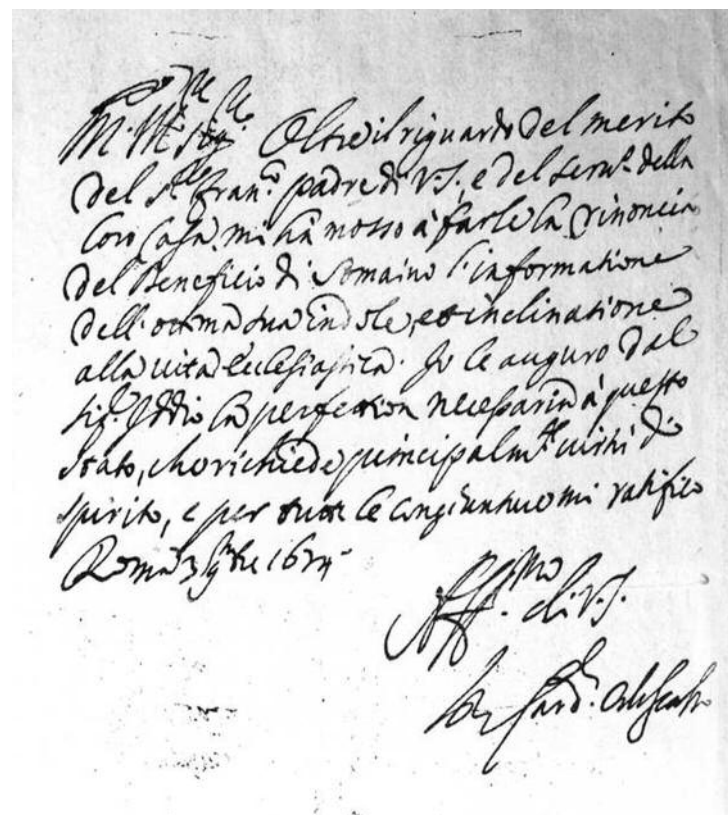 M. Ill.re Sig.re Oltre il riguardo del merito
del S.r Fran.co padre di V.S., e del seru.o della
loro Casa mi hà mosso à farle la rinoncia
del Beneficio di Somaino l'informatione
dell'ottima sua indole, et inclinatione
alla uita Ecclesiastica. Io le auguro dal
Sig.r Iddio la perfettion necessaria à questo
stato, che richiede principalm.te uirtù di
spirito, e per tutte le congiunture mi ratifico
Roma 3 9bre 1674
Aff.mo di V.S.
Card. Odescalchi